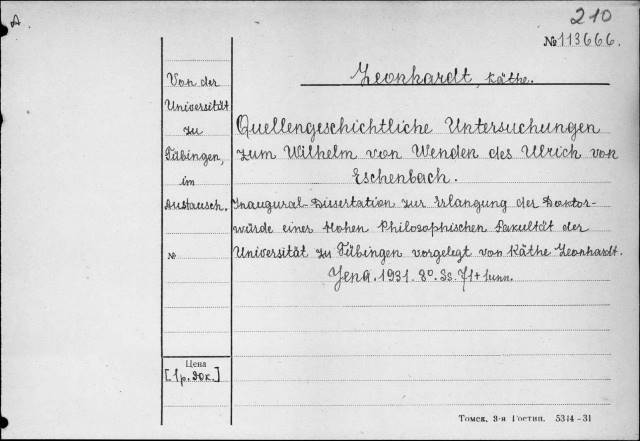 A
210
№ 113666.
Leonhardt, Käthe.
Von der
Universität
zu
Tübingen,
im
Austausch.
№
Цена
[1 р. 20 к.]
Quellengeschichtliche Untersuchungen
zum Wilhelm von Wenden des Ulrich von
Eschenbach.
Inaugural-Dissertation zur Erlangung der Doktor-
würde einer Hohen Philosophischen Fakultät der
Universität zu Tübingen vorgelegt von Käthe Leonhardt.
Jena. 1931. 8°. Ss. 71 + 1 unn.
Томск. 3-я Гостип. 5344-31